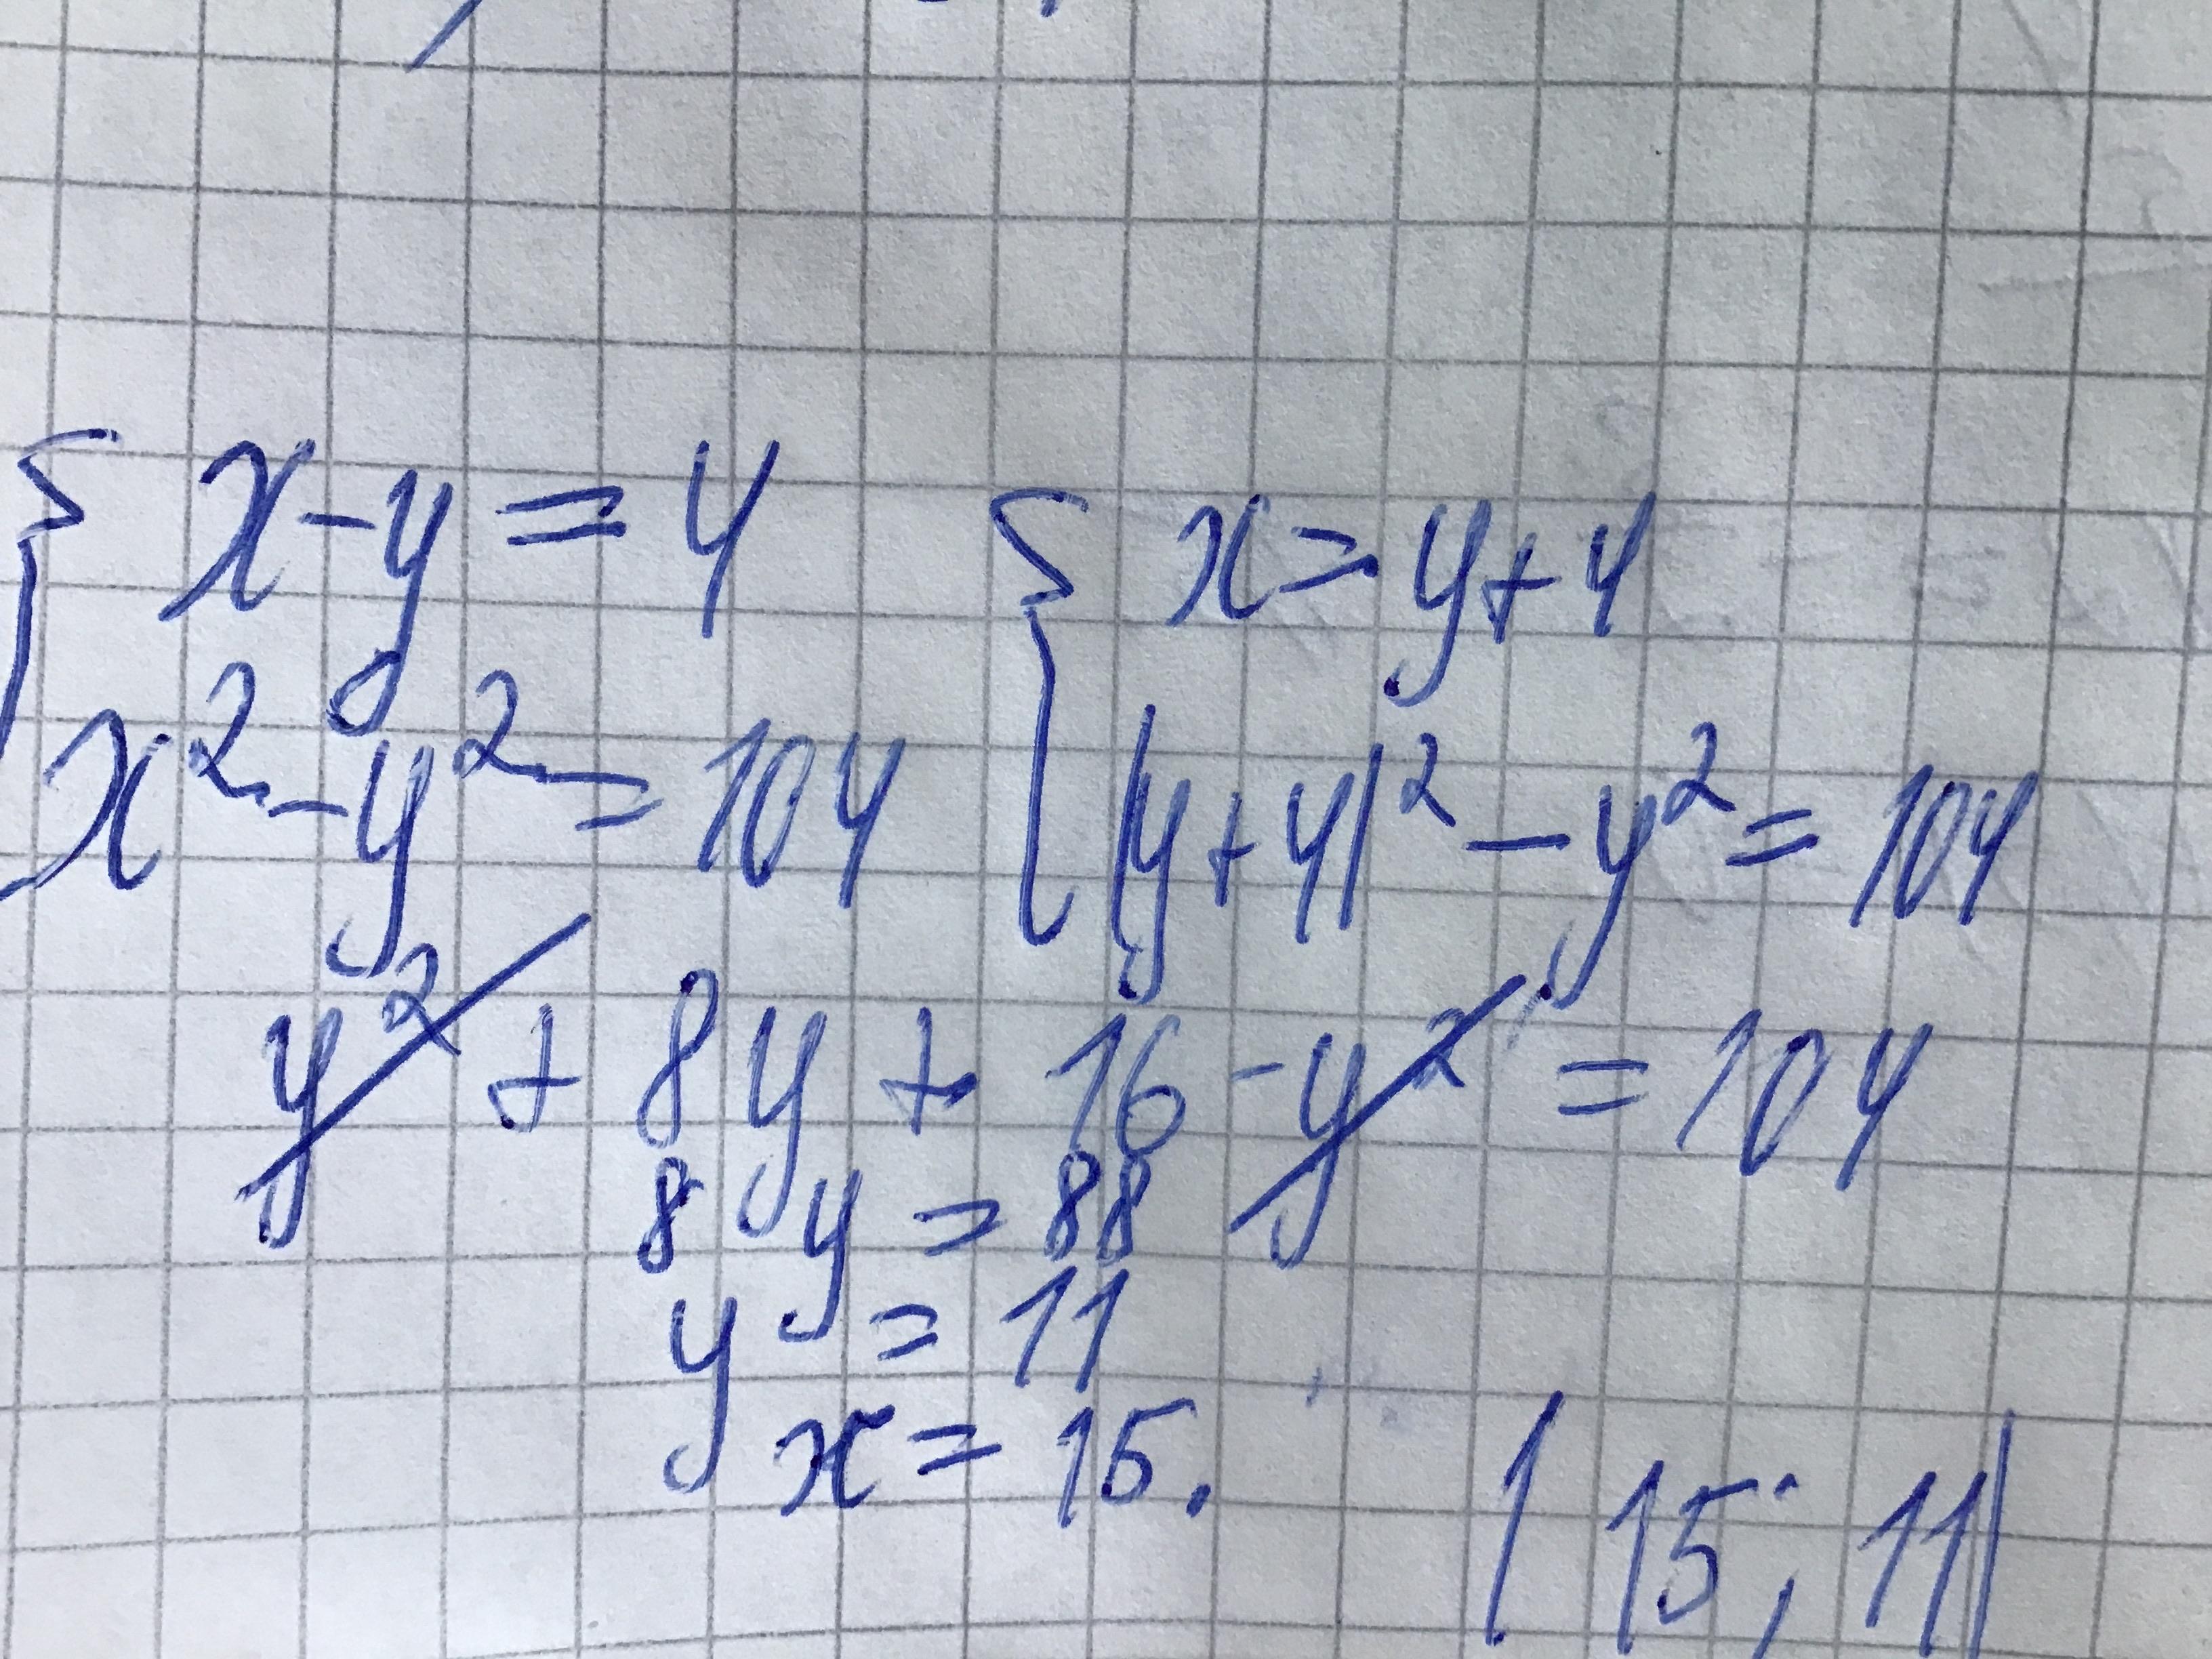 { x-y=4 { x=y+4
x²-y²=104 (y+4)²-y²=104
y²+8y+16-y²=104
8y=88
y=11
x=15.
(15; 11)